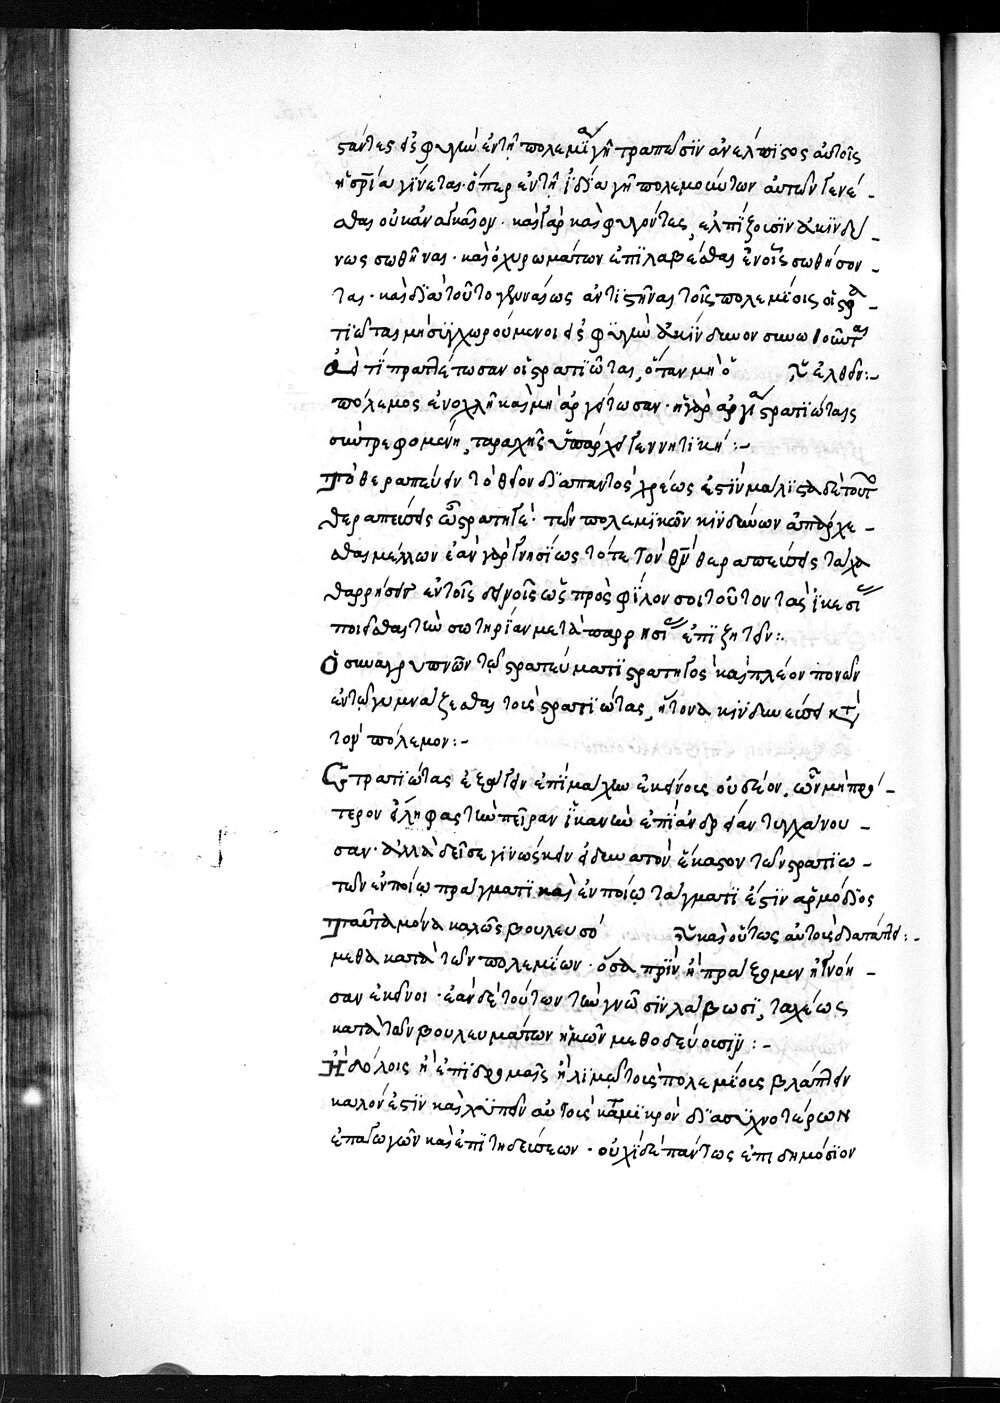 στάντες εἰς φυγὴν ἐν τῇ πολεμίᾳ γῇ τραπῶσιν ἀνέλπιστος αὐτοῖς
ἡ σρία γίνεται· ὅπερ ἐν τῇ ἰδίᾳ γῇ πολεμούντων αὐτῶν γενέ-
σθαι οὐκ ἀναγκαῖον· καὶ γὰρ καὶ φυγόντες, ἐλπίζουσιν ἀκινδύ-
νως σωθῆναι· καὶ ὀχυρωμάτων ἐπιλαβέσθαι ἐν οἷς σωθήσον-
ται· καὶ διὰ τοῦτο γενναίως ἀντιστῆναι τοῖς πολεμίοις οἱ στρα-
τιῶται μὴ συγχωρούμενοι εἰς φυγὴν ἀκίνδυνον συνωθοῦνται
τί πραττέτωσαν οἱ στρατιῶται, ὅταν μὴ ὁ ἐλθεῖν:-
πόλεμος ἐνοχλῇ καὶ μὴ ἀργείτωσαν· ἡ γὰρ ἀργία στρατιώταις
συντρεφομένη, ταραχῆς ὑπάρχει γεννητική:-
Τὸ θεραπεύειν τὸ θεῖον διαπαντὸς χρέως ἐστὶν μάλιστα δὲ τοῦτο
θεραπεύσεις ὦ στρατηγέ· τῶν πολεμικῶν κινδύνων ἀπάρχε-
σθαι μέλλων ἐὰν γὰρ γνησίως τότε τὸν θν θεραπεύσεις τάχα
θαρρήσεις ἐν τοῖς δεινοῖς ὡς πρὸς φίλον σοι τοῦτον τὰς ἱκεσίας
ποιεῖσθαι τὴν σωτηρίαν μετὰ παρρησίας ἐπιζητεῖν:-
Ὁ συναγρυπνῶν τῷ στρατεύματι στρατηγὸς καὶ πλέον πονῶν
ἐν τῷ γυμνάζεσθαι τοὺς στρατιώτας, ἥττονα κινδυνεύσει κατὰ
τὸν πόλεμον:-
Στρατιώτας ἐξάγειν ἐπὶ μάχην ἐκείνους οὐ δέον, ὧν μὴ πρό-
τερον εἴληφας τὴν πεῖραν ἱκανὴν ἐπὶ ἀνδρείαν τυγχάνου-
σαν· ἀλλὰ δεῖ σε γινώσκειν ἐν δυνατὸν ἕκαστον τῶν στρατιω-
τῶν ἐν ποίῳ πράγματι καὶ ἐν ποίῳ τάγματι ἐστὶν ἁρμόδιος
Ταῦτα μόνα καλῶς βουλευσό καὶ οὕτως αὐτοὺς διατάττε:-
μεθα κατὰ τῶν πολεμίων· ὅσα πρὶν ἢ πράξομεν ἠγνόη-
σαν ἐκεῖνοι· ἐὰν δὲ τούτων τὴν γνῶσιν λάβωσι, ταχέως
κατὰ τῶν βουλευμάτων ἡμῶν μεθοδεύουσιν:-
Ἢ δόλοις ἢ ἐπιδρομαῖς ἢ λιμῷ τοὺς πολεμίους βλάπτειν
καλὸν ἐστὶν καὶ λυπεῖν αὐτοὺς κατὰ μικρὸν διὰ συχνοτέρων
ἐπαγωγῶν καὶ ἐπιτηδεύσεων· οὐχὶ δὲ πάντως ἐπὶ δημόσιον